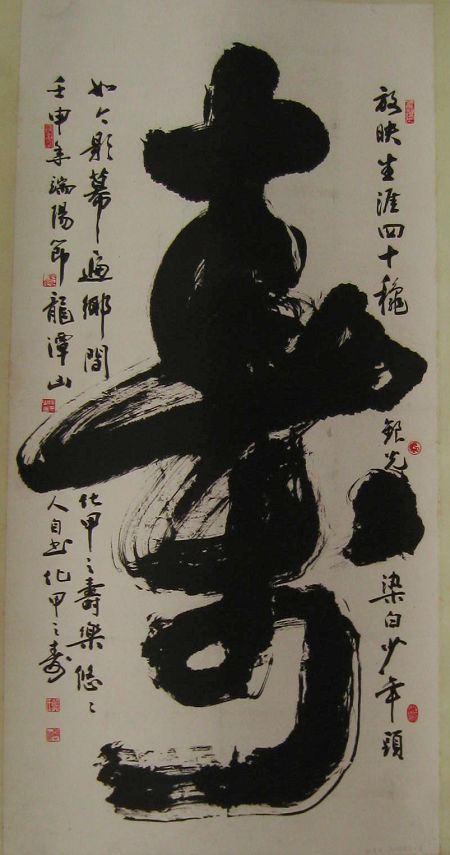 放映生涯四十穐銀光染白少年頭
壽
如今影幕遍鄉間化甲之壽樂悠々
壬申年端陽節龍潭山人自书化甲之寿